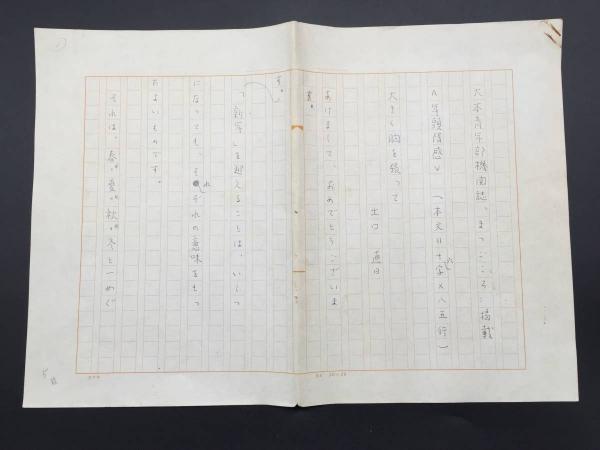 大本青年部機関誌、まつごころ、掲載
＜年頭随感＞（本文廿十字×八五行）
大きく胸を張って
出口 直日
あけまして、おめでとうございま
す。
「新年」を迎えることは、いくつ
になっても、それぞれの意味をもつ
たよいものです。
それは、春、夏、秋、冬と一めぐ